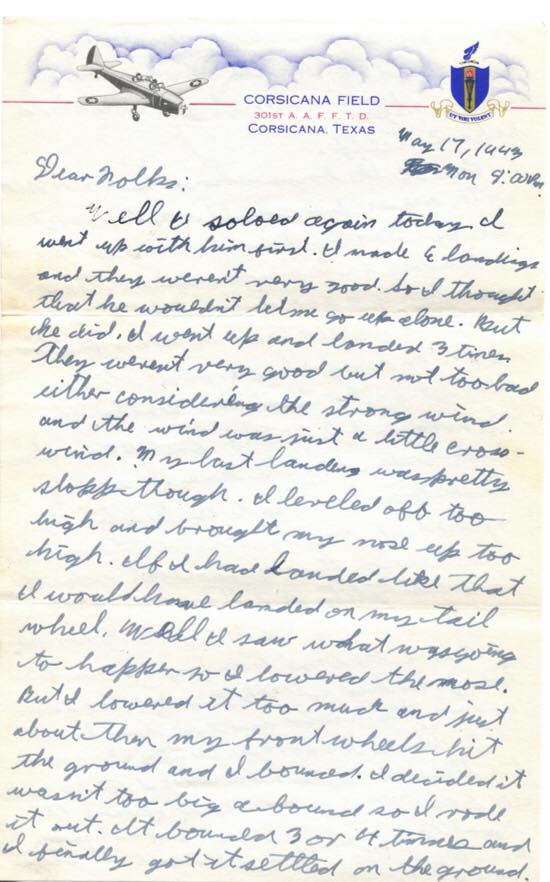 CORSICANA FIELD
301ST A. A. F. F. T. D.
CORSICANA, TEXAS
UT VIRI VOLENT
May 17, 1943
Mon 9:00 P.M.
Dear Folks:
Well I soloed again today. I
went up with him first. I made 6 landings
and they weren't very good. So I thought
that he wouldn't let me go up alone. But
he did. I went up and landed 3 times
They weren't very good but not too bad
either considering the strong wind.
and the wind was just a little cross-
wind. My last landing was pretty
sloppy though. I leveled off too
high and brought my nose up too
high. If I had landed like that
I would have landed on my tail
wheel. Well I saw what was going
to happen so I lowered the nose.
But I lowered it too much and just
about then my front wheels hit
the ground and I bounced. I decided it
wasn't too big a bound so I rode
it out. It bounced 3 or 4 times and
I finally got it settled on the ground.